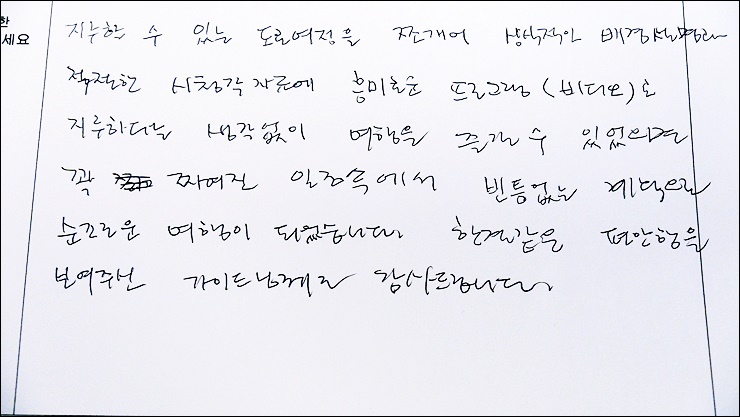 한
세요
지루할 수 있는 도로여정을 쪼개어 상식적인 배경설명과
적절한 시청각 자료에 흥미로운 프로그램(비디오)로
지루하다는 생각없이 여행을 즐길 수 있었으며
꽉 짜여진 일정속에서 빈틈없는 계획으로
순조로운 여행이 되었습니다. 한결같은 편안함을
보여주신 가이드님께 감사드립니다.